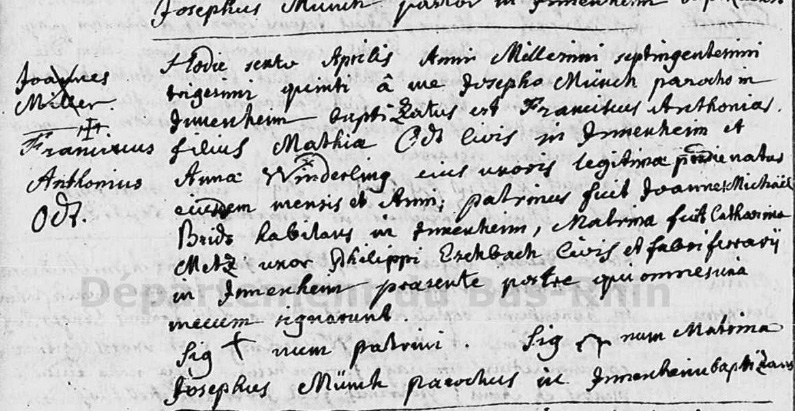 Josephus Münch parochus in Innenheim
Joannes
Miller.
Franciscus
Anthonius
Odt.
Hodie sexto Aprilis Anni Millesimi septingentesimi
trigesimi quinti à me Josepho Münch parocho in
Innenheim baptizatus est Franciscus Anthonius.
filius Mathia Odt civis in Innenheim et
Anna Winderling eius uxoris legitima pridie natus
eiusdem mensis et Anni, patrinus fuit Joannes Michaël
habitans in Innenheim, Matrina fuit Catharina
Metz uxor Philippi Eschbach civis et fabri ferrarij
in Innenheim praesente patre qui omnes una
mecum signarunt
Sig + num patrini. Sig num Matrina
Josephus Münch parochus in Innenheim baptizans
Département du Bas-Rhin